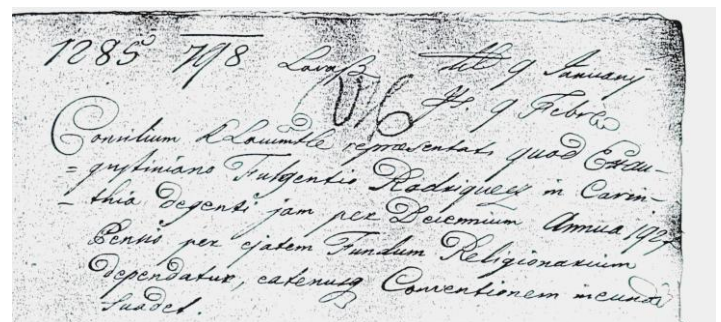 1285 798 Lovaß dtt 9 Januarij
Ps. 9 Febr.
Consilium R. Locumtle repraesentat, quod Exau-
= gustiniano Fulgentio Rodriquez in Carin-
- thia degenti jam per Decennium Annua 192
Pensio per ejatem Fundum Religionarium
dependatur, eatenusq Conventionem ineundā
Suadet.